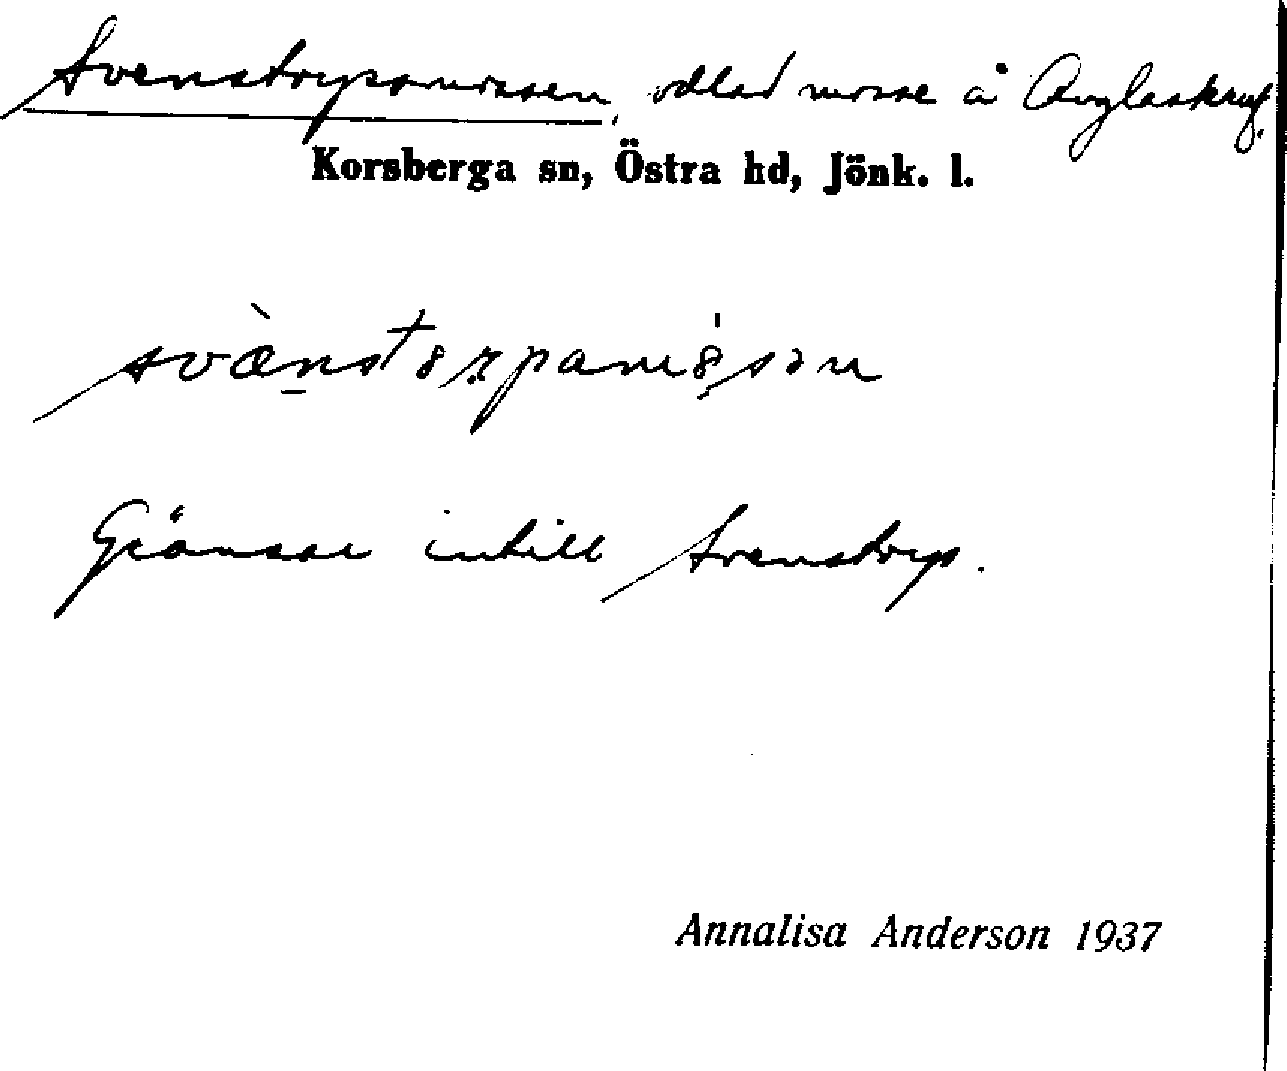 Svenstorpamossen, odlad mosse å
Korsberga sn, Östra hd, Jönk. l.
Gränsar intill Svenstorp.
Annalisa Anderson 1937